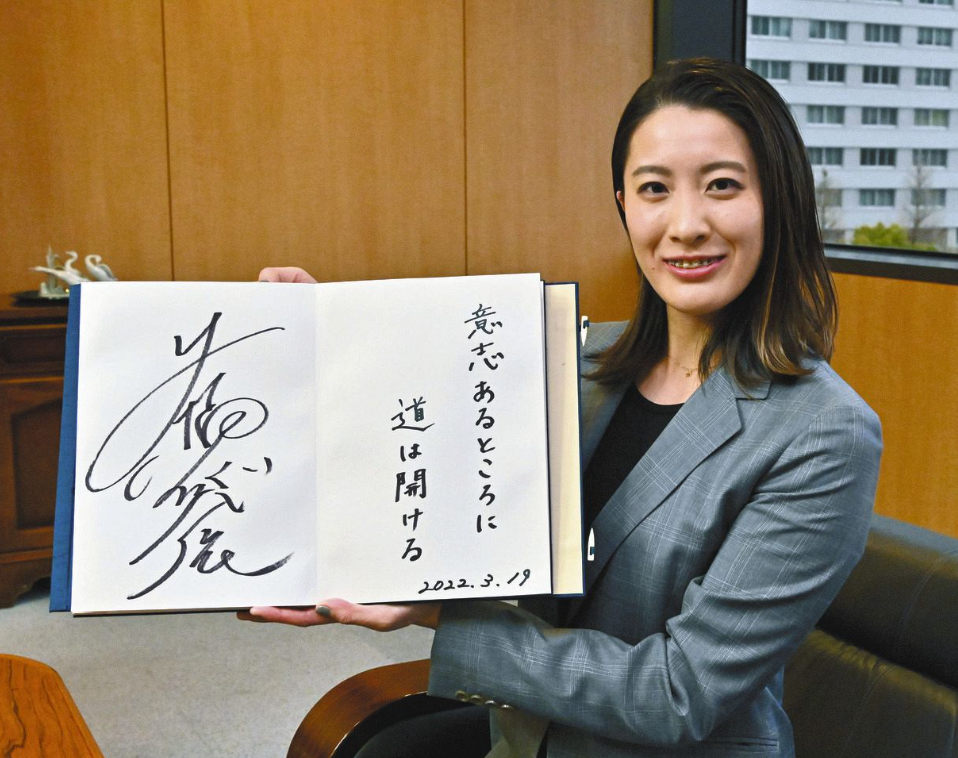 意志あるところに
道は開ける
2022.3.19